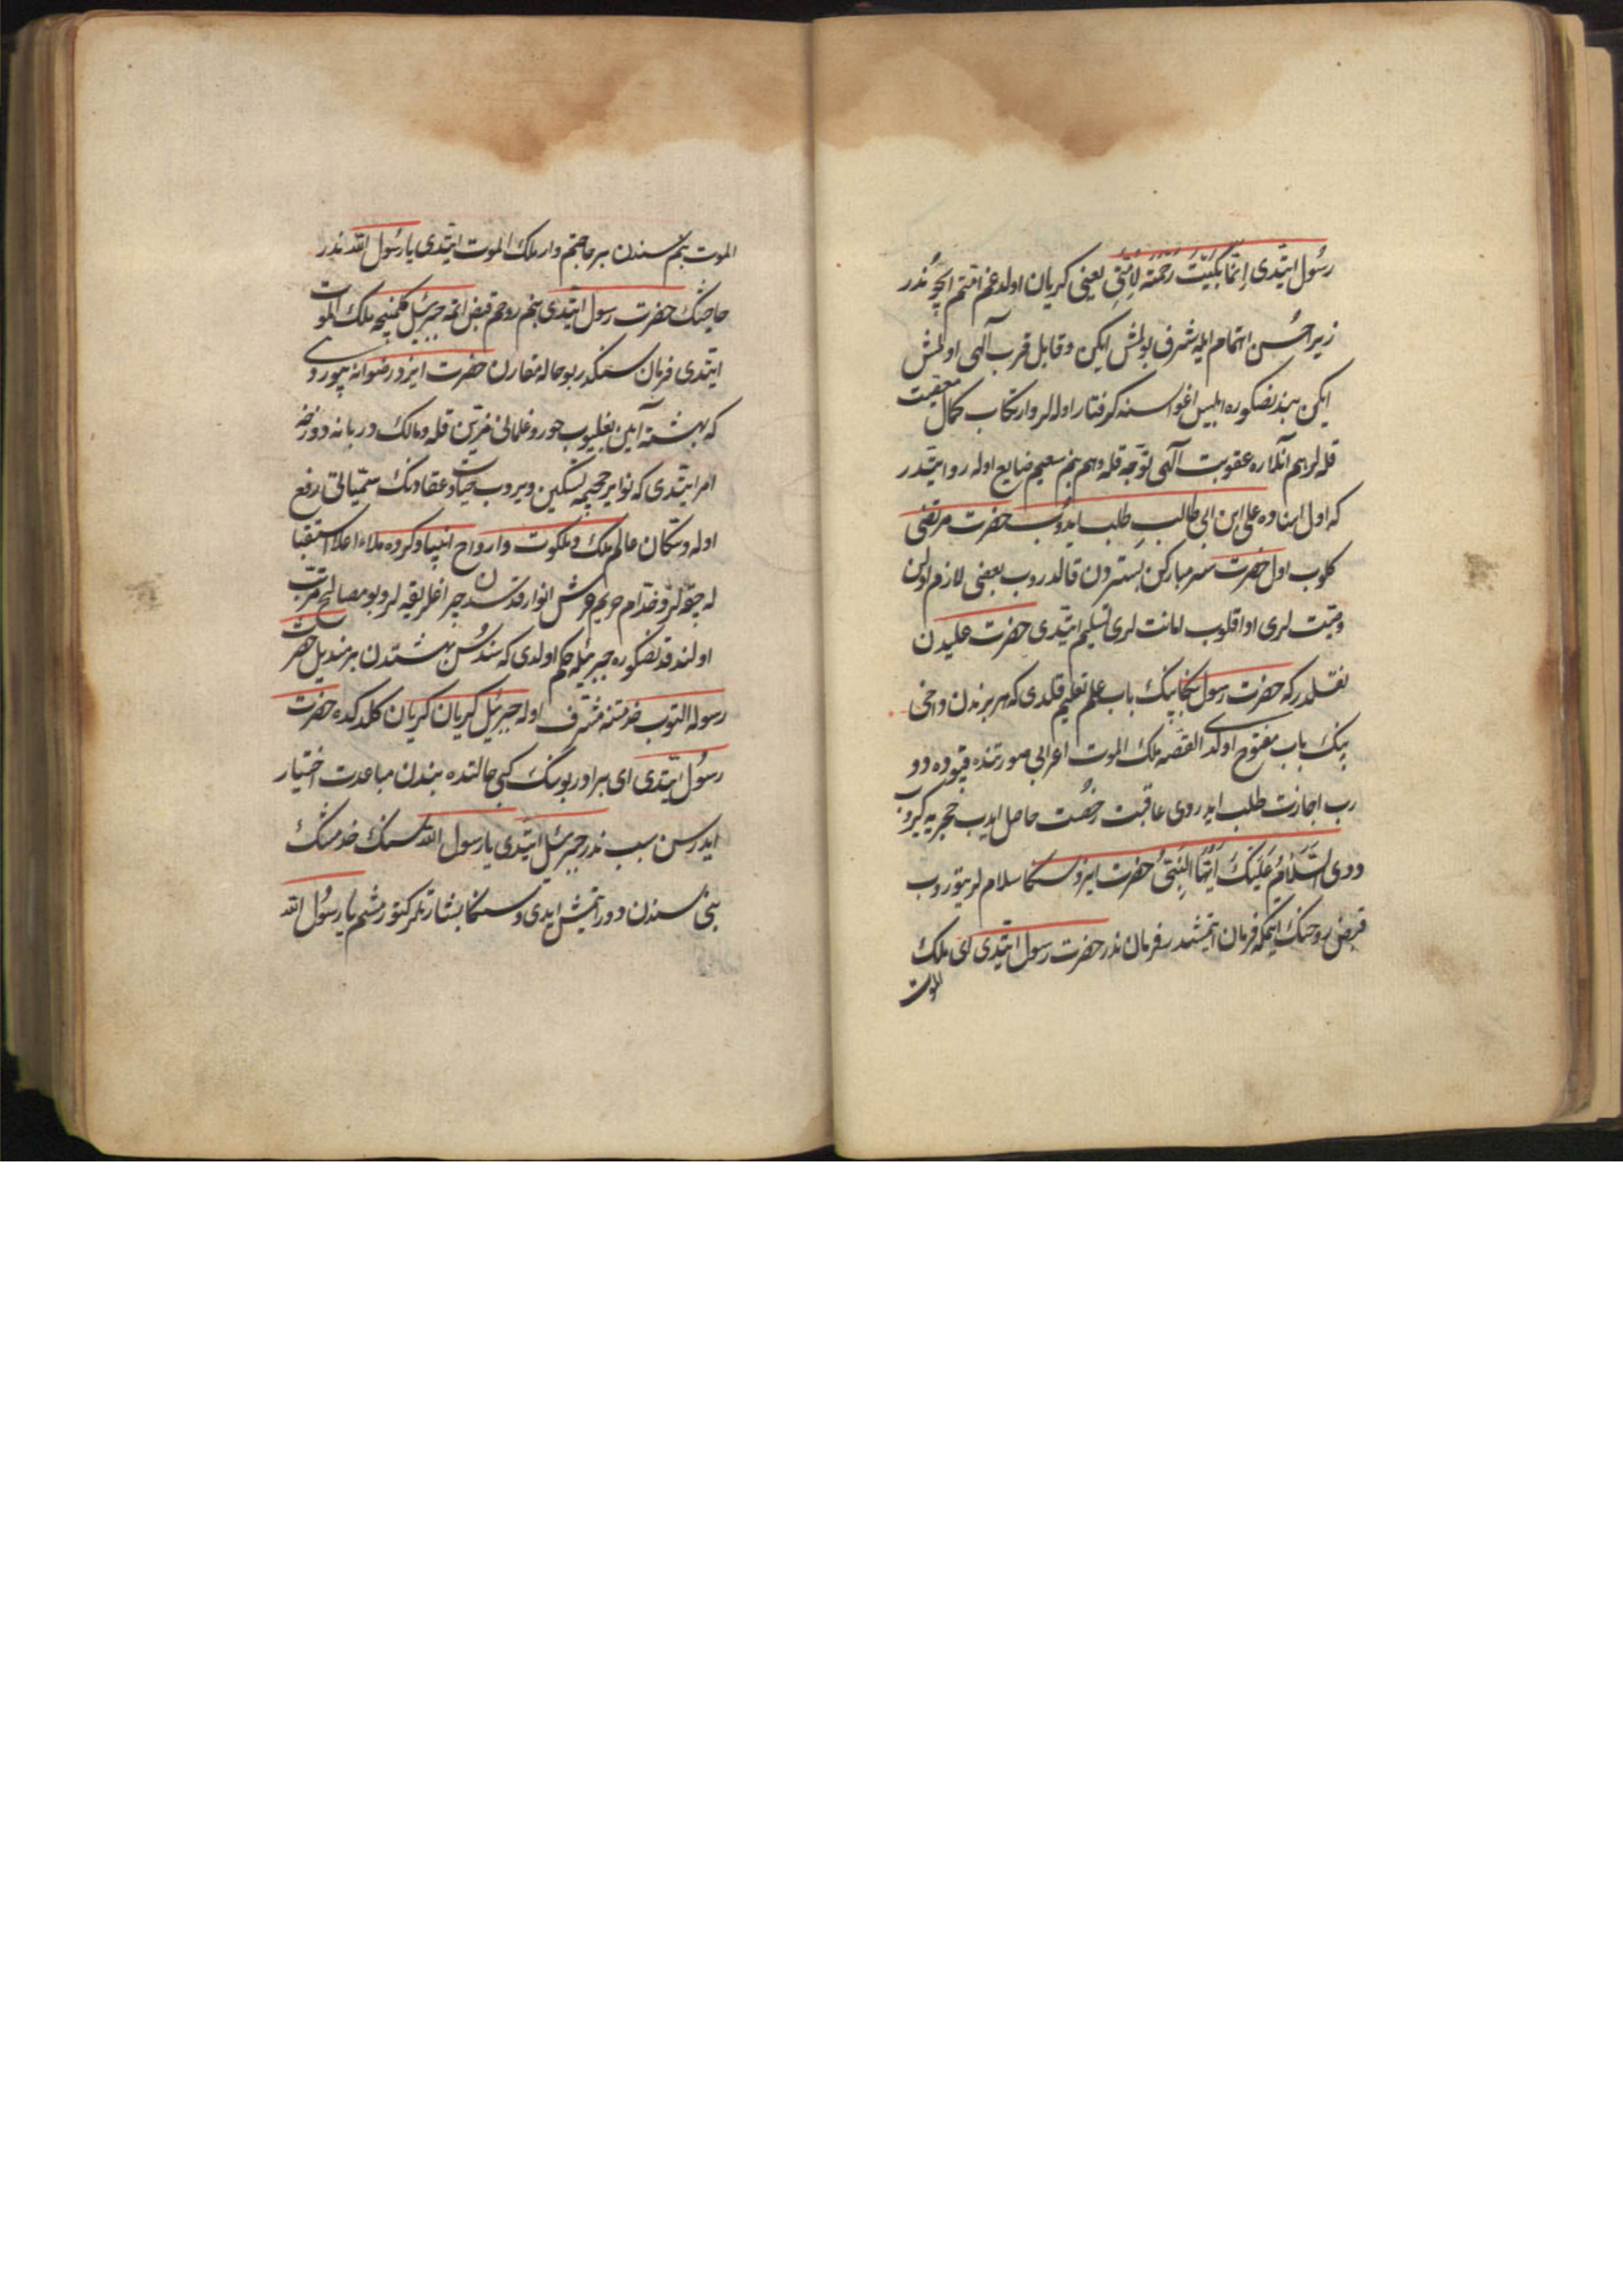 رسول ایتدی اِنَّمَا بَكَیْتُ رَحْمَةً لِاُمَّتِی یعنی كریان اولدوغم امتم ایچوندر
زیرا حسن اهتمام ایله شرف بولمش ایكن و قابل قرب الهی اولمش
ایكن بندنصكره ابلیس اغواسنه كرفتار اوله لر و ارتكاب كمال معصیت
قله لر هم آنلاره عقوبت الهی توجه قله و هم بنم سعیم ضایع اوله روایتدر
كه اول اثناده علی ابن ابی طالب طلب ایدوب حضرت مرتضی
كلوب اول حضرت سر مباركن بستردن قالدروب بعضی لازم اولن
وصیت لری ادا قلوب امانت لری تسلیم ایتدی حضرت علیدن
نقلدر كه حضرت رسول بكا بیك باب علم تعلیم قلدی كه هر برندن داخی
بیك باب مفتوح اولدی القصه ملك الموت اعرابی صورتنده قپوده دو
رب اجازت طلب ایدردی عاقبت رخصت حاصل ایدب حجریه كیروب
ددی اَلسَّلَامُ عَلَیْكَ اَیُّهَا النَّبِیُّ حضرت ایزد سكا سلام لر یتوروب
قبض روحنك ایتمكه فرمان ایتمشدر فرمان ندر حضرت رسول ایتدی ای ملك
الموت
الموت بنم سندن بر حاجتم وار ملك الموت ایتدی یا رسول الله ندر
حاجتك حضرت رسول ایتدی بنم روحم قبض اتمه جبرئیل كلمینجه ملك الموت
ایتدی فرمان سنكدر بو حاله مقارن حضرت ایزد رضوانه بیوردی
كه بهشته آیین بغلیوب حور و غلمانی مزین قله و مالك دربانه دوزخه
امر ایتدی كه نوایر جحیمه تسكین ویروب حیات و عقاربنك سمیاتی رفع
اوله و سكان عالم ملك و ملكوت و ارواح انبیا و كروه ملاء اعلا استقبا
له چقه لر و خدام حریم عرش انوار قدسدن چراغلر یقه لر و بو مصالح مرتب
اولندقدنصكره جبرئیله حكم اولدی كه سندس بهشتدن بر مندیل حضرت
رسوله التوب خدمتنه مشرف اوله جبرئیل كریان كریان كلدكده حضرت
رسول ایتدی ای برادر بونك كبی حالتده بندن مباعدت اختیار
ایدرسن سبب ندر جبرئیل ایتدی یا رسول الله سنك خدمتنك
بنی سندن دور اتمش ایدی و سكا بشارتلر كتورمشم یا رسول الله